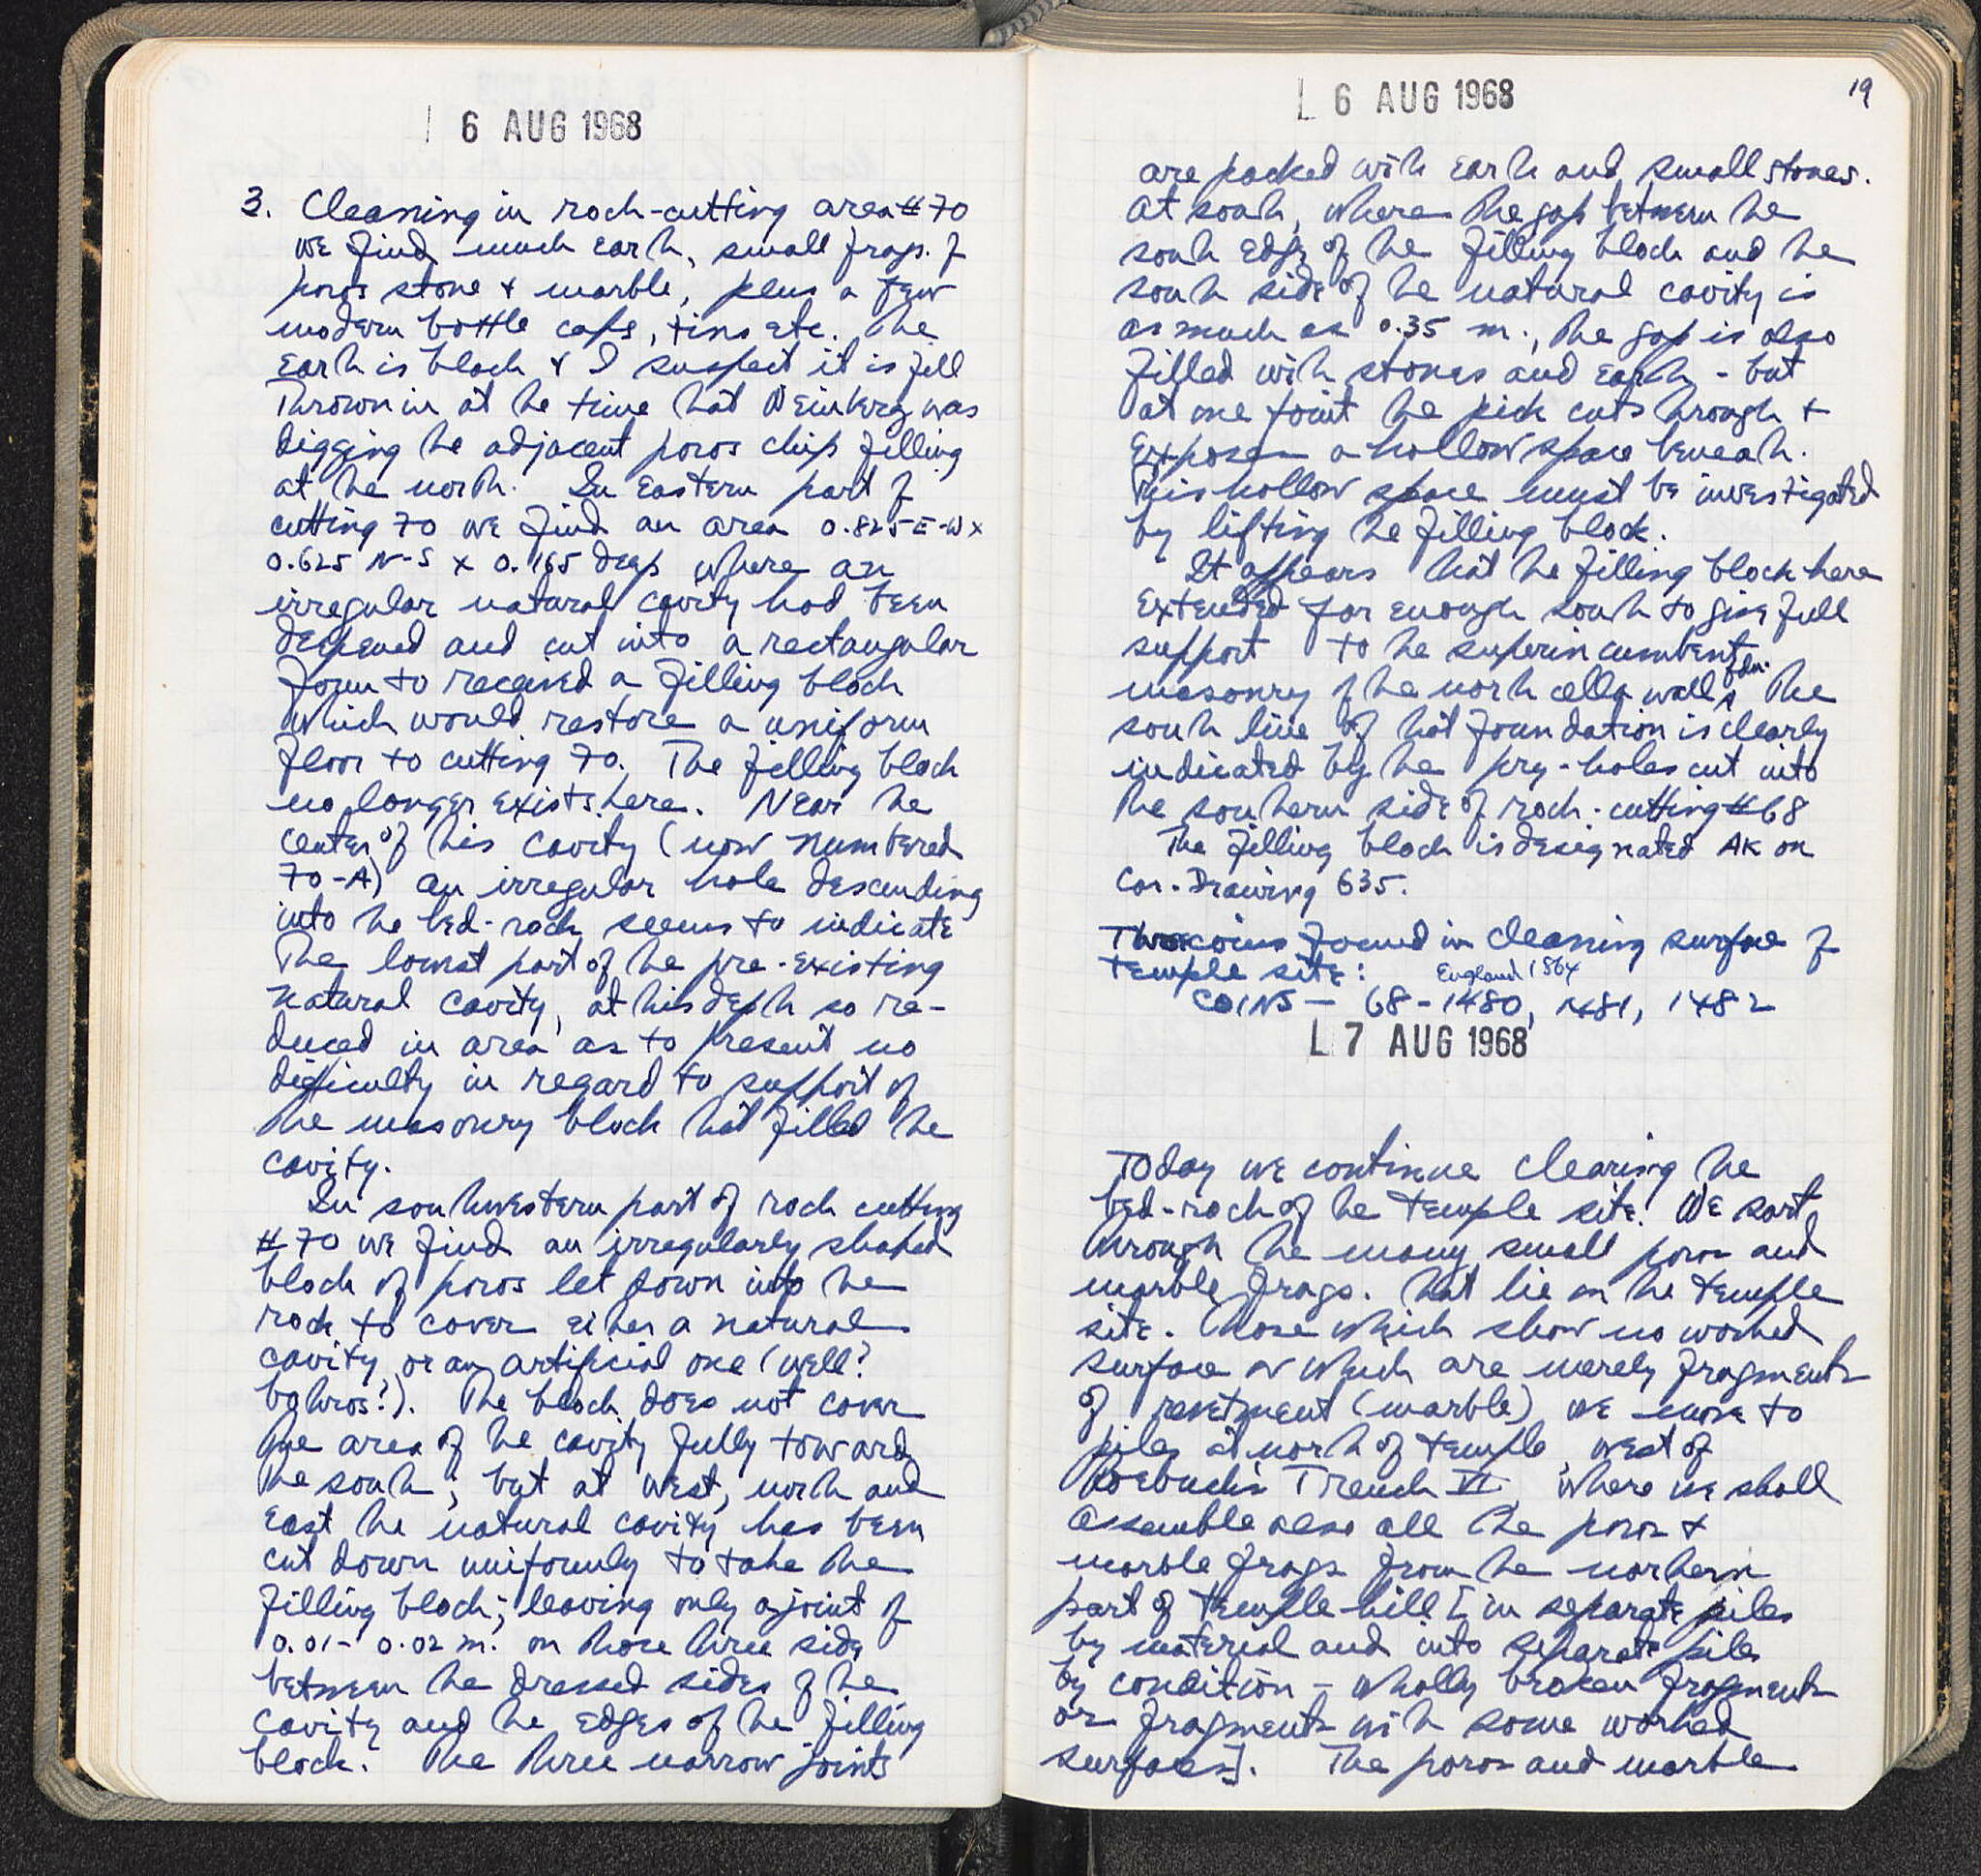 6 AUG 1968
3. Cleaning in rock-cutting area #70
we find much earth, small frags. of
poros stone & marble, plus a few
modern bottle caps, tins etc. The
earth is black & I suspect it is fill
thrown in at the time that Weinberg was
digging the adjacent poros chip filling
at the north. In Eastern part of
cutting 70 we find an area 0.825 E-W x
0.625 N-S x 0.165 deep where an
irregular natural cavity had been
deepened and cut into a rectangular
form to received a filling block
which would restore a uniform
floor to cutting 70. The filling block
no longer exists here. Near the
center of this cavity (now numbered
70-A) an irregular hole descending
into the bed-rock seems to indicate
the lowest part of the pre-existing
natural cavity, at this depth so re-
duced in area as to present no
difficulty in regard to support of
the masonry block that filled the
cavity.
In southwestern part of rock cutting
#70 we find an irregularly shaped
block of poros let down into the
rock to cover either a natural
cavity or an artificial one (well?
bothros?). The block does not cover
the area of the cavity fully toward
the south; but at west, north and
east the natural cavity has been
cut down uniformly to take the
filling block; leaving only a joint of
0.01-0.02 m. on those three side
between the dressed sides of the
cavity and the edges of the filling
block. The three narrow joints
6 AUG 1968
19
are packed with earth and small stones.
At south, where the gap between the
south edge of the filling block and the
south side of the natural cavity is
as much as 0.35 m., the gap is also
filled with stones and earth - but
at one point the pick cuts through &
exposes a hollow space beneath.
This hollow space must be investigated
by lifting the filling block.
It appears that the filling block here
extended far enough south to give full
support to the superincumbent
masonry of the north cella wall fdn. The
south line of that foundation is clearly
indicated by the pry-holes cut into
the southern side of rock-cutting #68
The filling block is designated AK on
Cor. Drawing 635.
coins found in cleaning surface of
temple site:
England 1864
COINS - 68-1480, 1481, 1482
7 AUG 1968
Today we continue clearing the
bed-rock of the temple site. We sort
through the many small poros and
marble frags. that lie on the temple
site. Those which show no worked
surface or which are merely fragments
of revetment (marble) we move to
piles at north of temple, west of
Roebuck's Trench VI where we shall
assemble also all the poros &
marble frags from the northern
part of temple hill [in separate piles
by material and into separate piles
by condition - wholly broken fragments
or fragments with some worked
surfaces]. The poros and marble